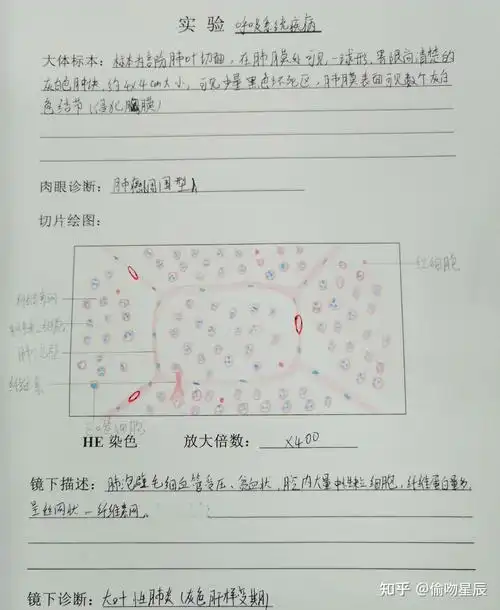 实 验 呼吸系统疾病
大体标本：标本为部分肺叶切面，在肺膜处可见一球形，界限尚清楚的
灰白色肿块，约4x4cm大小，可见少量黑色坏死区，肺膜表面可见数个灰白
色结节（浸化胸膜）
肉眼诊断：肺癌周围型
切片绘图：
红细胞
肺泡壁
纤维素
HE 染色 放大倍数：×400
镜下描述：肺泡壁毛细血管受压、贫血状，腔内大量中性粒细胞，纤维蛋白量多，
呈丝网状—纤维素网。
镜下诊断：大叶性肺炎（灰色肝样变期）
知乎 @偷吻星辰